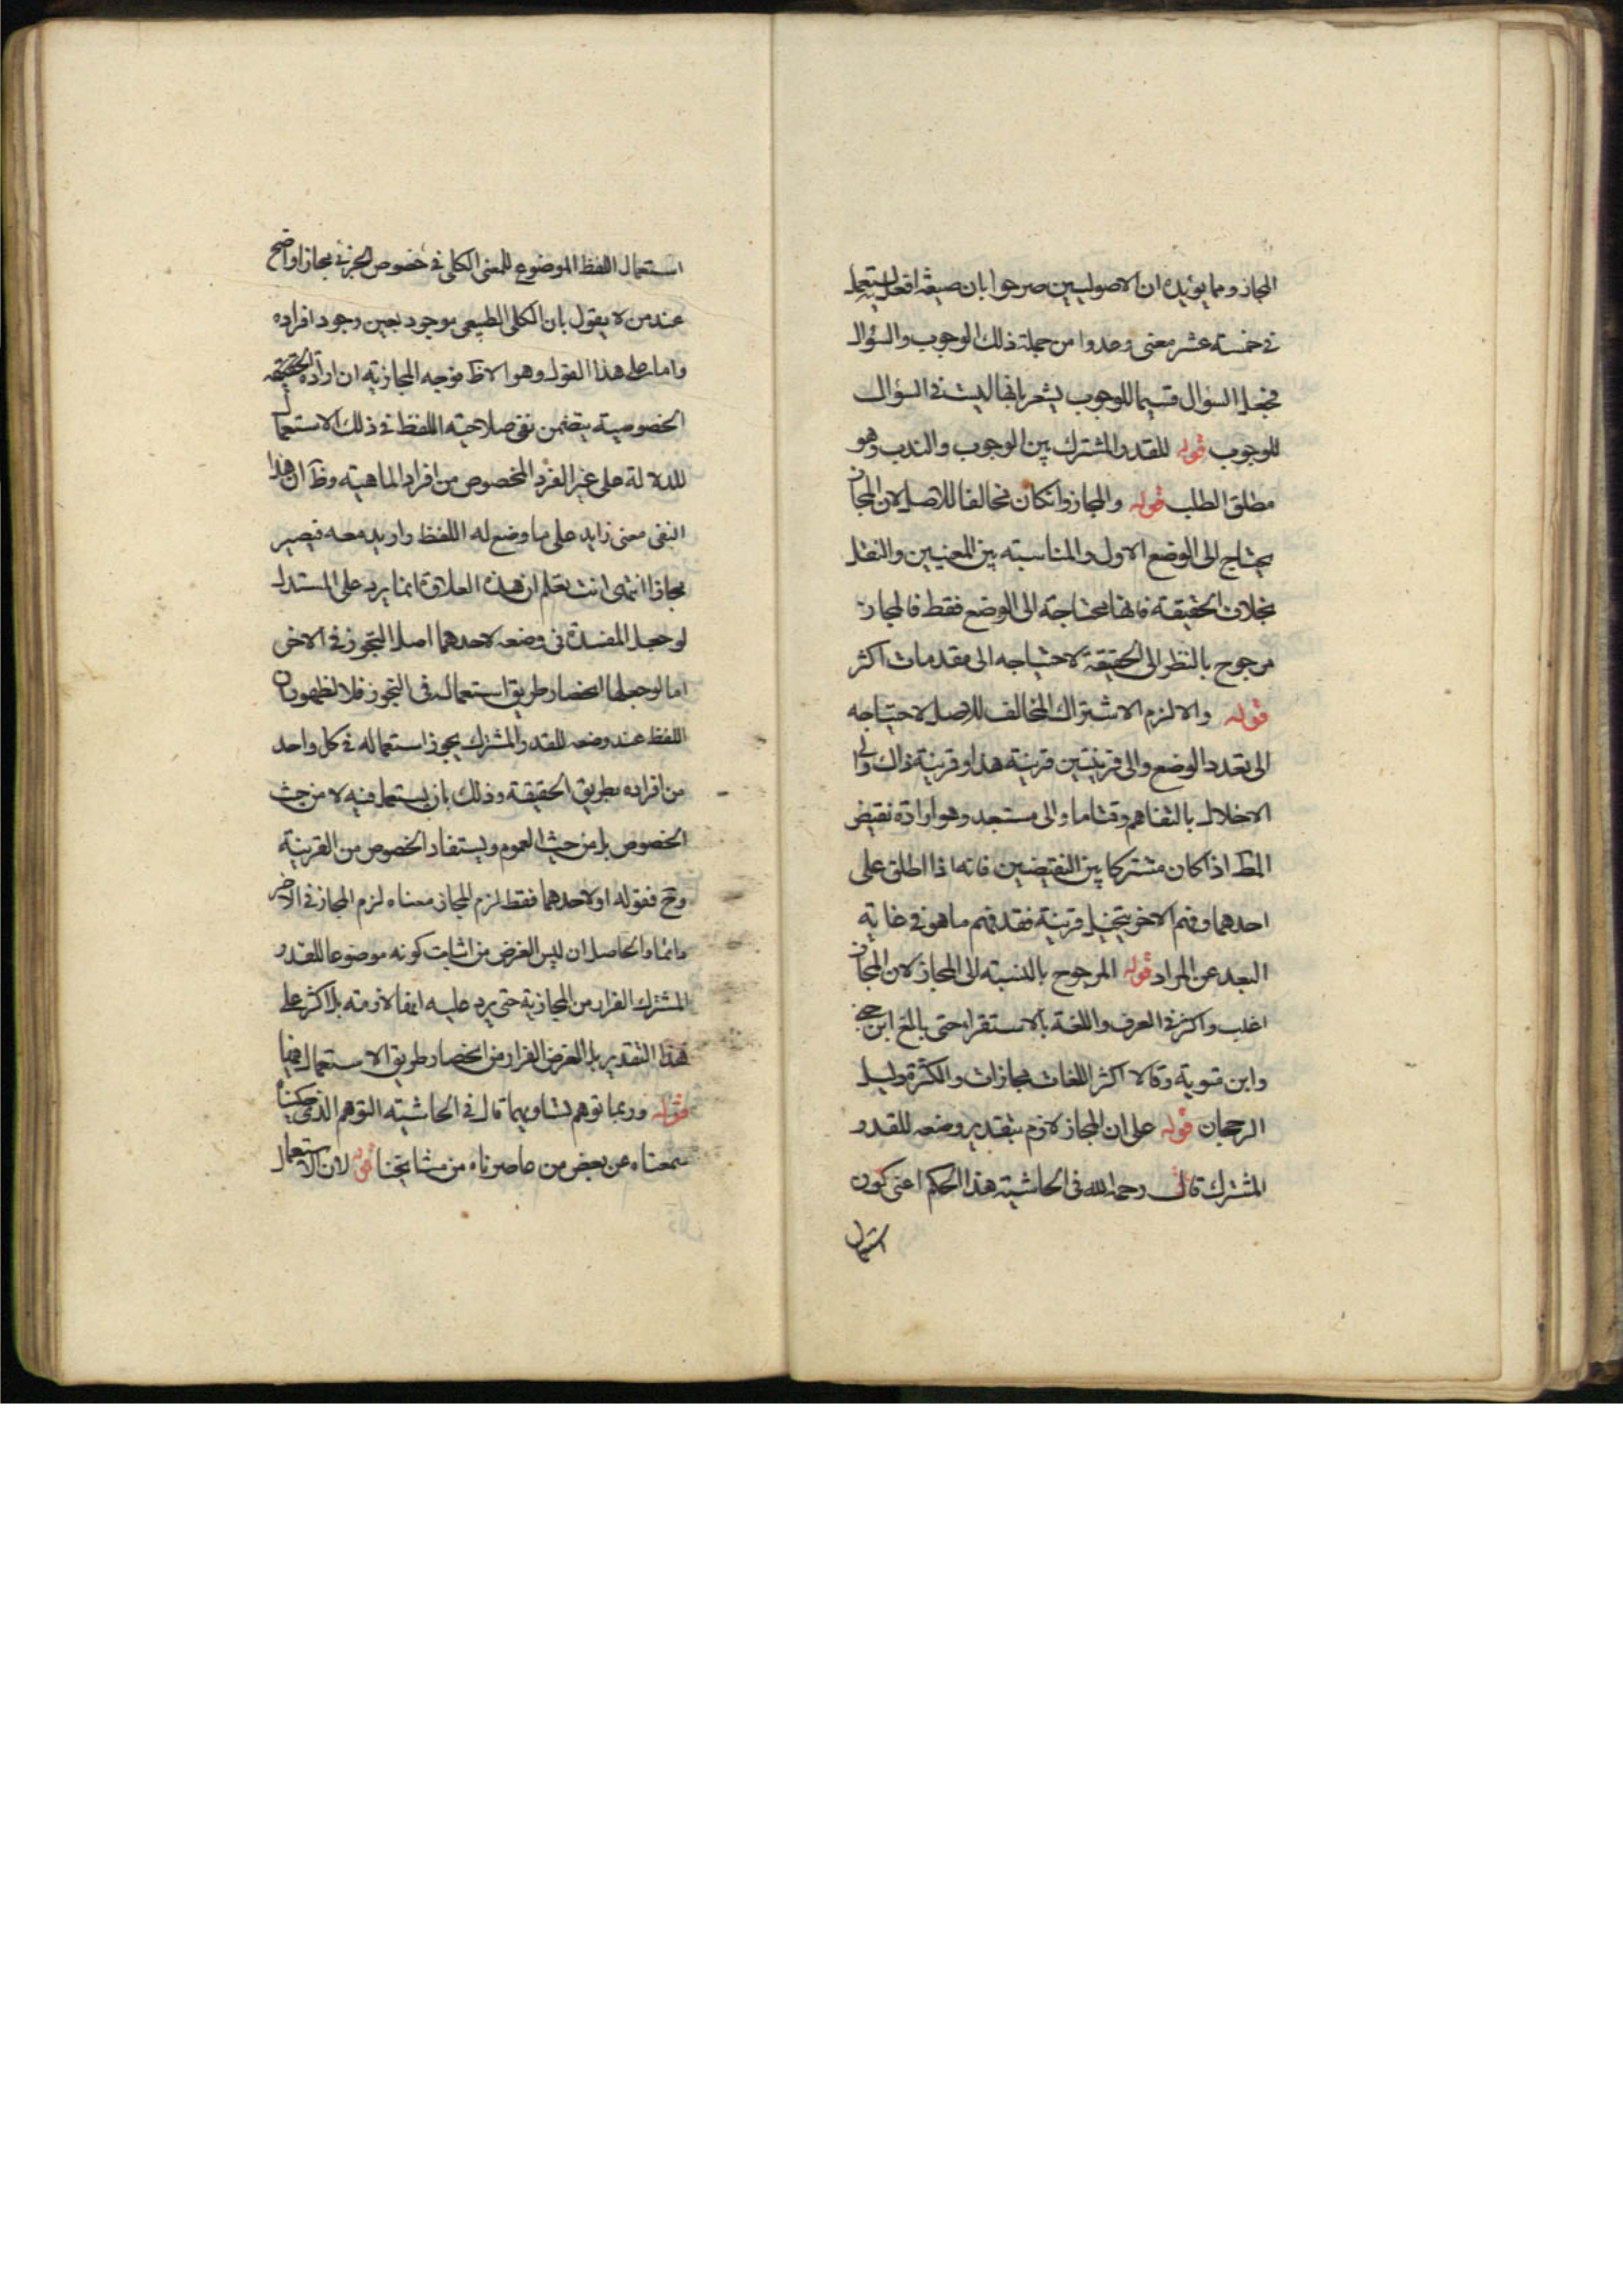 المجاز ومما يؤيده ان الاصوليين صرحوا بان صيغة افعل يستعمل
في خمسة عشر معنى وعدوا من جملة ذلك الوجوب والسؤال
فجعل السؤال قسيما للوجوب يشعر بانها ليست في السؤال
للوجوب قوله للقدر المشترك بين الوجوب والندب وهو
مطلق الطلب قوله والمجاز وانكان مخالفا للاصل لان المجاز
يحتاج الى الوضع الاول والمناسبة بين المعنيين والنقل
بخلاف الحقيقة فانها محتاجة الى الوضع فقط فالمجاز
مرجوح بالنظر الى الحقيقة لاحتياجه الى مقدمات اكثر
قوله والا لزم الاشتراك المخالف للاصل لاحتياجه
الى تعدد الوضع والى قرينتين قرينة هذا وقرينة ذاك والى
الاخلال بالتفاهم وقتاما والى مستبعد وهو ارادة نقيض
المط اذا كان مشتركا بين النقيضين فانه اذا اطلق على
احدهما وفهم الاخر بتخيل قرينة فقد فهم ما هو في غاية
البعد عن المراد قوله المرجوح بالنسبة الى المجاز لان المجاز
اغلب واكثر في العرف واللغة بالاستقراء حتى بالغ ابن جني
وابن متوية وقالا اكثر اللغات مجازات والكثرة دليل
الرجحان قوله على ان المجاز لازم بتقدير وضعه للقدر
المشترك قال رحمه الله في الحاشية هذا الحكم اعني كون
استعمال
استعمال اللفظ الموضوع للمعنى الكلي في خصوص الجزئي مجازا واضح
عند من لا يقول بان الكلي الطبيعي موجود بعين وجود افراده
واما على هذا القول وهو الاظ فوجه المجازية ان ارادة
الخصوصية يتضمن نفي صلاحية اللفظ في ذلك الاستعمال
للدلالة على غير الفرد المخصوص من افراد الماهية وظ ان هذا
النفي معنى زايد على ما وضع له اللفظ واريد معه فيصير
مجازا انتهى انت تعلم ان هذه العلاوة انما يرد على المستدل
لو جعل المفسدة في وضعه لاحدهما اصل التجوز في الاخر
اما لو جعلها انحصار طريق استعماله في التجوز فلا لظهور ان
اللفظ عند وضعه للقدر المشترك يجوز استعماله في كل واحد
من افراده بطريق الحقيقة وذلك بان يستعمل فيه لا من حيث
الخصوص بل من حيث العموم ويستفاد الخصوص من القرينة
وح فقوله او لاحدهما فقط لزم المجاز معناه لزم المجاز في الاخر
دائما والحاصل ان ليس الغرض من اثبات كونه موضوعا للقدر
المشترك الفرار من المجازية حتى يرد عليه انها لازمة بل اكثر على
هذا التقدير بل الغرض الفرار من انحصار طريق الاستعمال فيها
قوله وربما توهم تساويهما قال في الحاشية التوهم الذي حكيناه
سمعناه عن بعض من عاصرناه من مشايخنا قوله لان الاستعمال